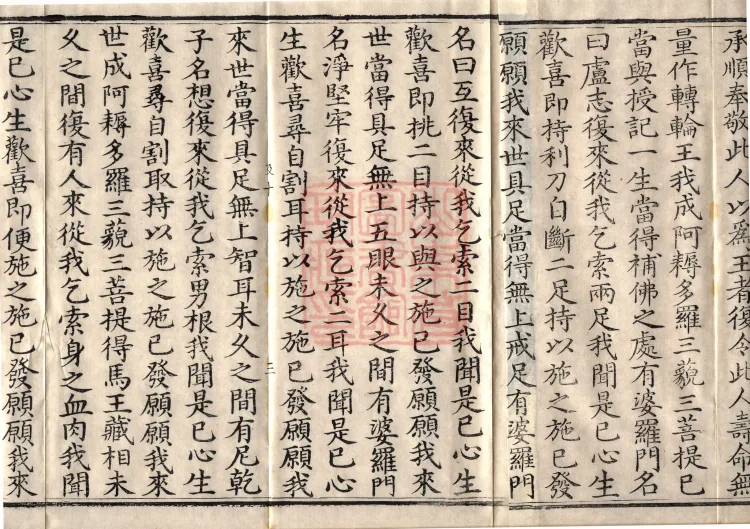 承順奉敬此人以為王者復令此人壽命無
量作轉輪王我成阿耨多羅三藐三菩提已
當與授記一生當得補佛之處有婆羅門名
曰盧志復來從我乞索兩足我聞是已心生
歡喜即持利刀自斷二足持以施之施已發
願願我來世具足當得無上戒足有婆羅門
名曰互復來從我乞索二目我聞是已心生
歡喜即挑二目持以與之施已發願願我來
世當得具足無上五眼未久之間有婆羅門
名淨堅牢復來從我乞索二耳我聞是已心
生歡喜尋自割耳持以施之施已發願願我
來世當得具足無上智耳未久之間有尼乾
子名想復來從我乞索男根我聞是已心生
歡喜尋自割取持以施之施已發願願我來
世成阿耨多羅三藐三菩提得馬王藏相未
久之間復有人來從我乞索身之血肉我聞
是已心生歡喜即便施之施已發願願我來